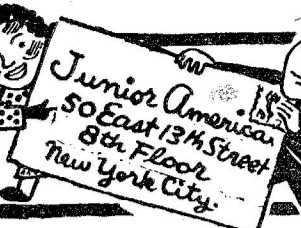 Junior America.
50 East 13th Street
8th Floor
New York City.